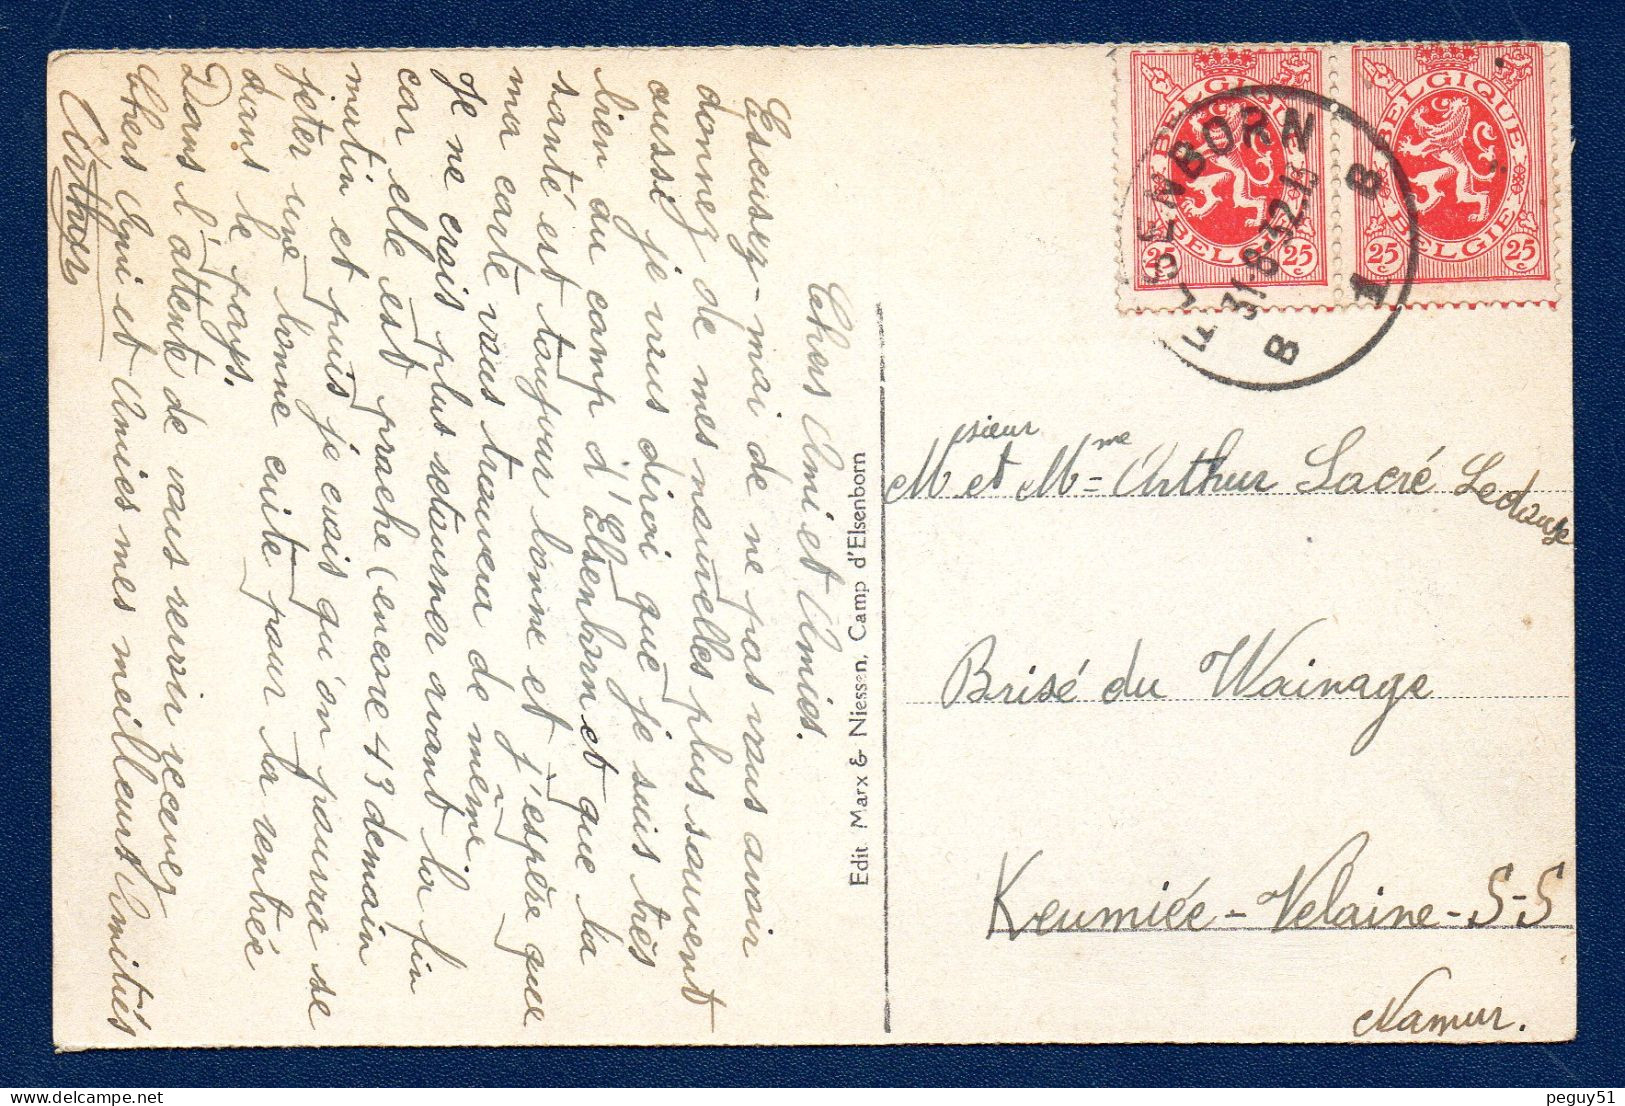 Chers Ami et Amies.
Escusez-moi de ne pas vous avoir
donnez de mes nouvelles plus souvent
aussi je vous dirai que je suis très
bien au camp d'Elsenborn et que la
santé est toujour bonne et j'espère que
ma carte vous trouvera de même.
Je ne crois plus retourner avant la fin
car elle est proche (encore 43 demain
matin et puis je crois qu'on pourrer se
jeter une bonne cuite pour la rentrée
dans le pays.
Dans l'attente de vous revoir recevez
Chers Ami et Amies mes meilleurs Amitiés
Arthur
Edit. Marx & Niessen, Camp d'Elsenborn
BELGIQUE
BELGIE
25 c
25 c
BELGIQUE
BELGIE
25 c
25 c
ELSENBORN
31 8-32.15
B 1 B
Msieur et Mme Arthur Sacré Ledouxe
Brisé du Wainage
Keumiée-Velaine-S-S
Namur.
peguy51